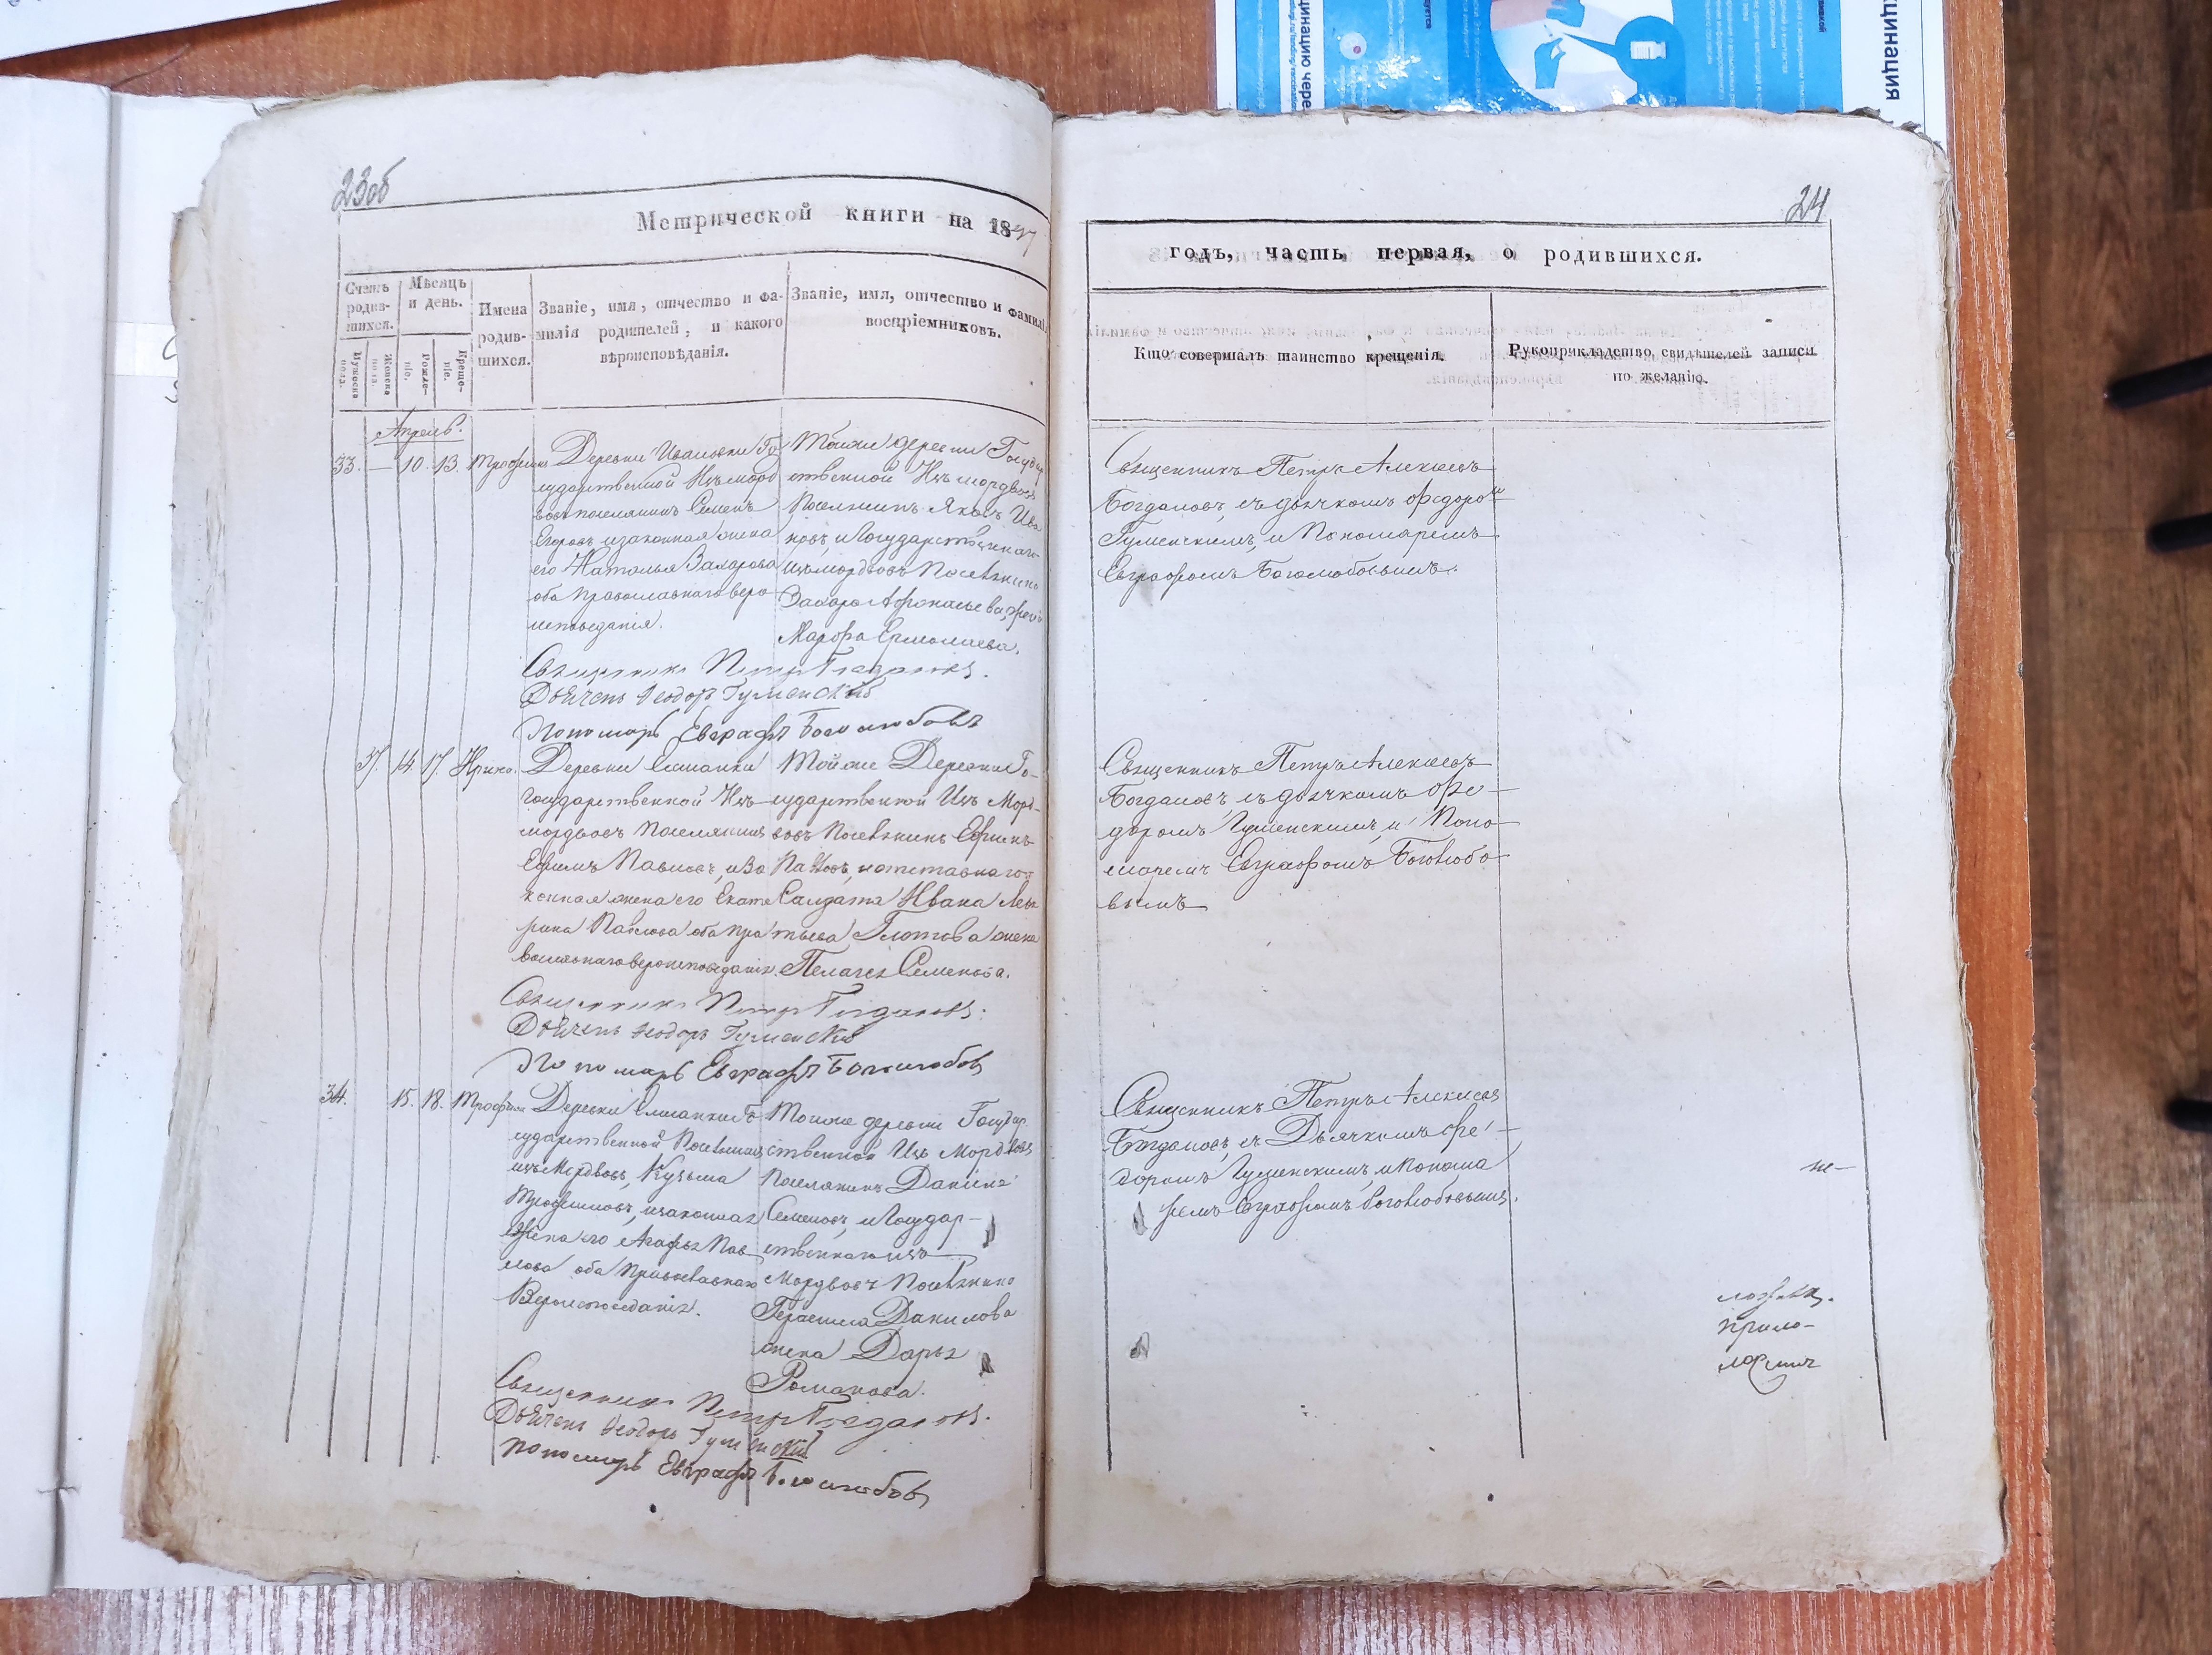 23об
Метрической книги на 18
Счетъ родившихся.
Мужеска пола.
Женска пола.
Мѣсяцъ и день.
Рожденіе.
Крещеніе.
Имена родившихся.
Званіе, имя, отчество и фамилія родителей, и какого вѣроисповѣданія.
Званіе, имя, отчество и фамилі
воспріемниковъ.
Апрель.
33. — 10. 13.
Деревни Ивановки Го
сударственной Изъ морд
вовъ поселянинъ Семенъ
Егоровъ изаконная жена
его Наталья Захарова
оба православнаго веро
исповеданія.
Тойже деревни Государ
ственной Изъ мордвовъ
Поселнинъ Яковъ Ива
новъ, и Государственнаго
изъ мордвовъ Поселянина
Захара Афонасьева,
Марфа Ермолаева.
Священникъ Петръ Богдановъ.
Дьячекъ Ѳеодоръ Гуменскій
Пономарь Евграфъ Боголюбовъ
37. 14. 17. Ирина.
Деревни Елшанки
Государственной Изъ
мордвовъ Поселянинъ
Ефимъ Павловъ, иЗа
конная жена его Екате
рина Павлова оба пра
вославнаго вероисповеданія.
Тойже Деревни Го-
сударственной Изъ Морд-
вовъ Поселянинъ Ефимъ
Павловъ, иотставнаго
Салдата Ивана
Глотова жена
Пелагея Семенова.
Священникъ Петръ Богдановъ.
Дьячекъ Ѳеодоръ Гуменскій
Пономарь Евграфъ Боголюбовъ
34. 15. 18. Трофимъ
Деревни Елшанки Го
сударственной Поселянинъ
изъ Мордвовъ, Кузьма
Трофимовъ, изаконная
Жена его Агафья Пав
лова оба Православнаго
Вероисповеданія.
Тойже деревни Государ
ственной Изъ Мордвовъ
Поселянинъ Данила
Семеновъ, и Государ-
ственнаго изъ
Мордвовъ Поселянина
Герасима Данилова
жена Дарья
Романова.
Священникъ Петръ Богдановъ.
Дьячекъ Ѳеодоръ Гуменскій
Пономарь Евграфъ Боголюбовъ
24
годъ, часть первая, о родившихся.
Кто совершалъ таинство крещенія.
Рукоприкладство свидѣтелей записи
по желанію.
Священникъ Петръ Алексеевъ
Богдановъ, съ дьячкомъ Федоромъ
Гуменскимъ, и Пономаремъ
Евграфомъ Боголюбовымъ.
Священникъ Петръ Алексеевъ
Богдановъ съ дьячкомъ Фе-
доромъ Гуменскимъ, и Поно
маремъ Евграфомъ Боголюбо
вымъ
Священникъ Петръ Алексеевъ
Богдановъ, съ Дьячкомъ Фе-
доромъ Гуменскимъ, и Понома
ремъ Евграфомъ Боголюбовымъ.